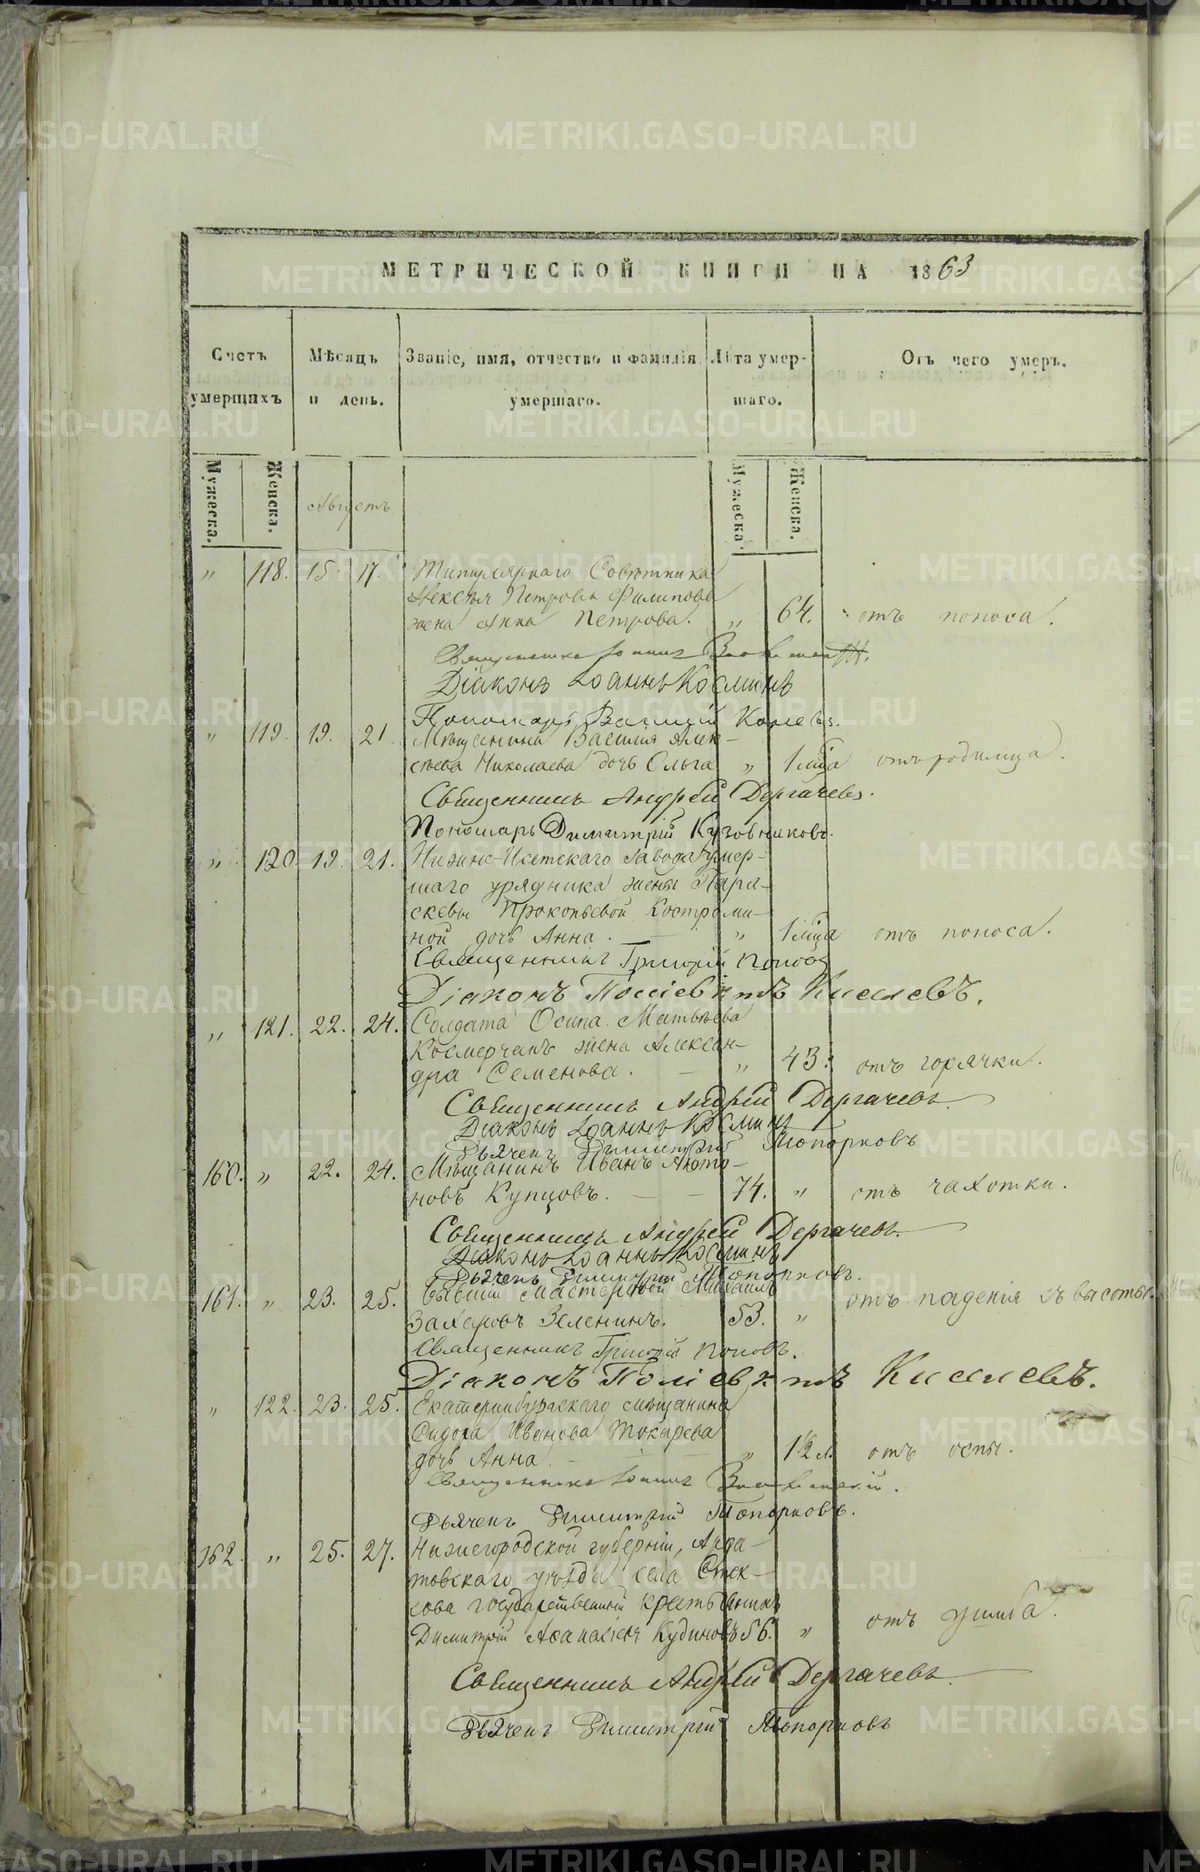 МЕТРИЧЕСКОЙ КНИГИ НА 1863
Счетъ умершихъ
Мѣсяцъ и день.
Званіе, имя, отчество и фамилія умершаго.
Лѣта умершаго.
Отъ чего умеръ.
Мужеска.
Женска.
Августъ
Мужеска.
Женска.
" 118. 15. 17. Титулярнаго Совѣтника
Алексѣя Петрова Филипова
жена Анна Петрова. " 64. отъ поноса.
Священникъ Іоаннъ
Діаконъ Іоаннъ Косминъ
Пономарь Василій
" 119. 19. 21. Мѣщанина Василія Алек-
сѣева Николаева дочь Ольга " 1 мца отъ родимца.
Священникъ Андрей Дергачевъ.
Пономарь Димитрій Кузовниковъ.
" 120. 19. 21. Нижне-Исетскаго завода умер-
шаго урядника жены Пара-
скевы Прокопьевой Костроми-
ной дочь Анна. " 1 мца отъ поноса.
Священникъ Григорій Поповъ
Діаконъ Поліевктъ Киселевъ.
" 121. 22. 24. Солдата Осипа Матвѣева
жена Алексан-
дра Семенова. " 43. отъ горячки.
Священникъ Андрей Дергачевъ
Діаконъ Іоаннъ Косминъ
Дьячекъ Димитрій Топорковъ
160. " 22. 24. Мѣщанинъ Иванъ Анто-
новъ Купцовъ. 74. " отъ чахотки.
Священникъ Андрей Дергачевъ.
Діаконъ Іоаннъ Косминъ
Дьячекъ Димитрій Топорковъ.
161. " 23. 25. бывшій мастеровой Михаилъ
Захаровъ Зеленинъ. 53. " отъ паденія съ высоты.
Священникъ Григорій Поповъ.
Діаконъ Поліевктъ Киселевъ.
" 122. 23. 25. Екатеринбургскаго мѣщанина
Сидора Иванова Токарева
дочь Анна. " 1½ л. отъ оспы.
Священникъ Іоаннъ
Дьячекъ Димитрій Топорковъ.
162. " 25. 27. Нижегородской губерніи, Арда-
товскаго уѣзда села Стек-
сова государственный крестьянинъ
Димитрій Афанасіевъ Кудиновъ 56. " отъ ушиба.
Священникъ Андрей Дергачевъ
Дьячекъ Димитрій Топорковъ
METRIKI.GASO-URAL.RU